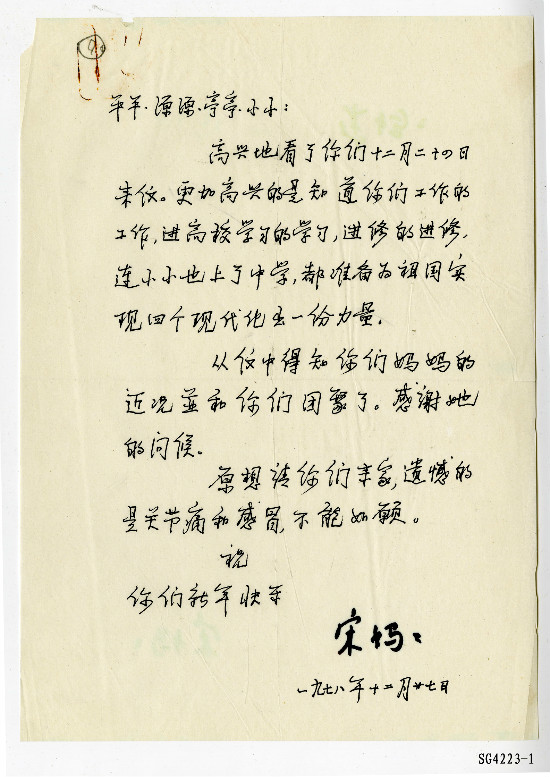 平平、源源、亭亭、小小：
高兴地看了你们十二月二十四日
来仪。更加高兴的是知道你们工作的
工作，进高校学习的学习，进修的进修，
连小小也上了中学，都准备为祖国实
现四个现代化出一份力量。
从仪中得知你们妈妈的
近况並和你们团聚了。感谢她
的问候。
原想请你们来家，遗憾的
是关节痛和感冒，不能如愿。
祝
你们新年快乐
宋妈:
一九七八年十二月廿七日
SG4223-1